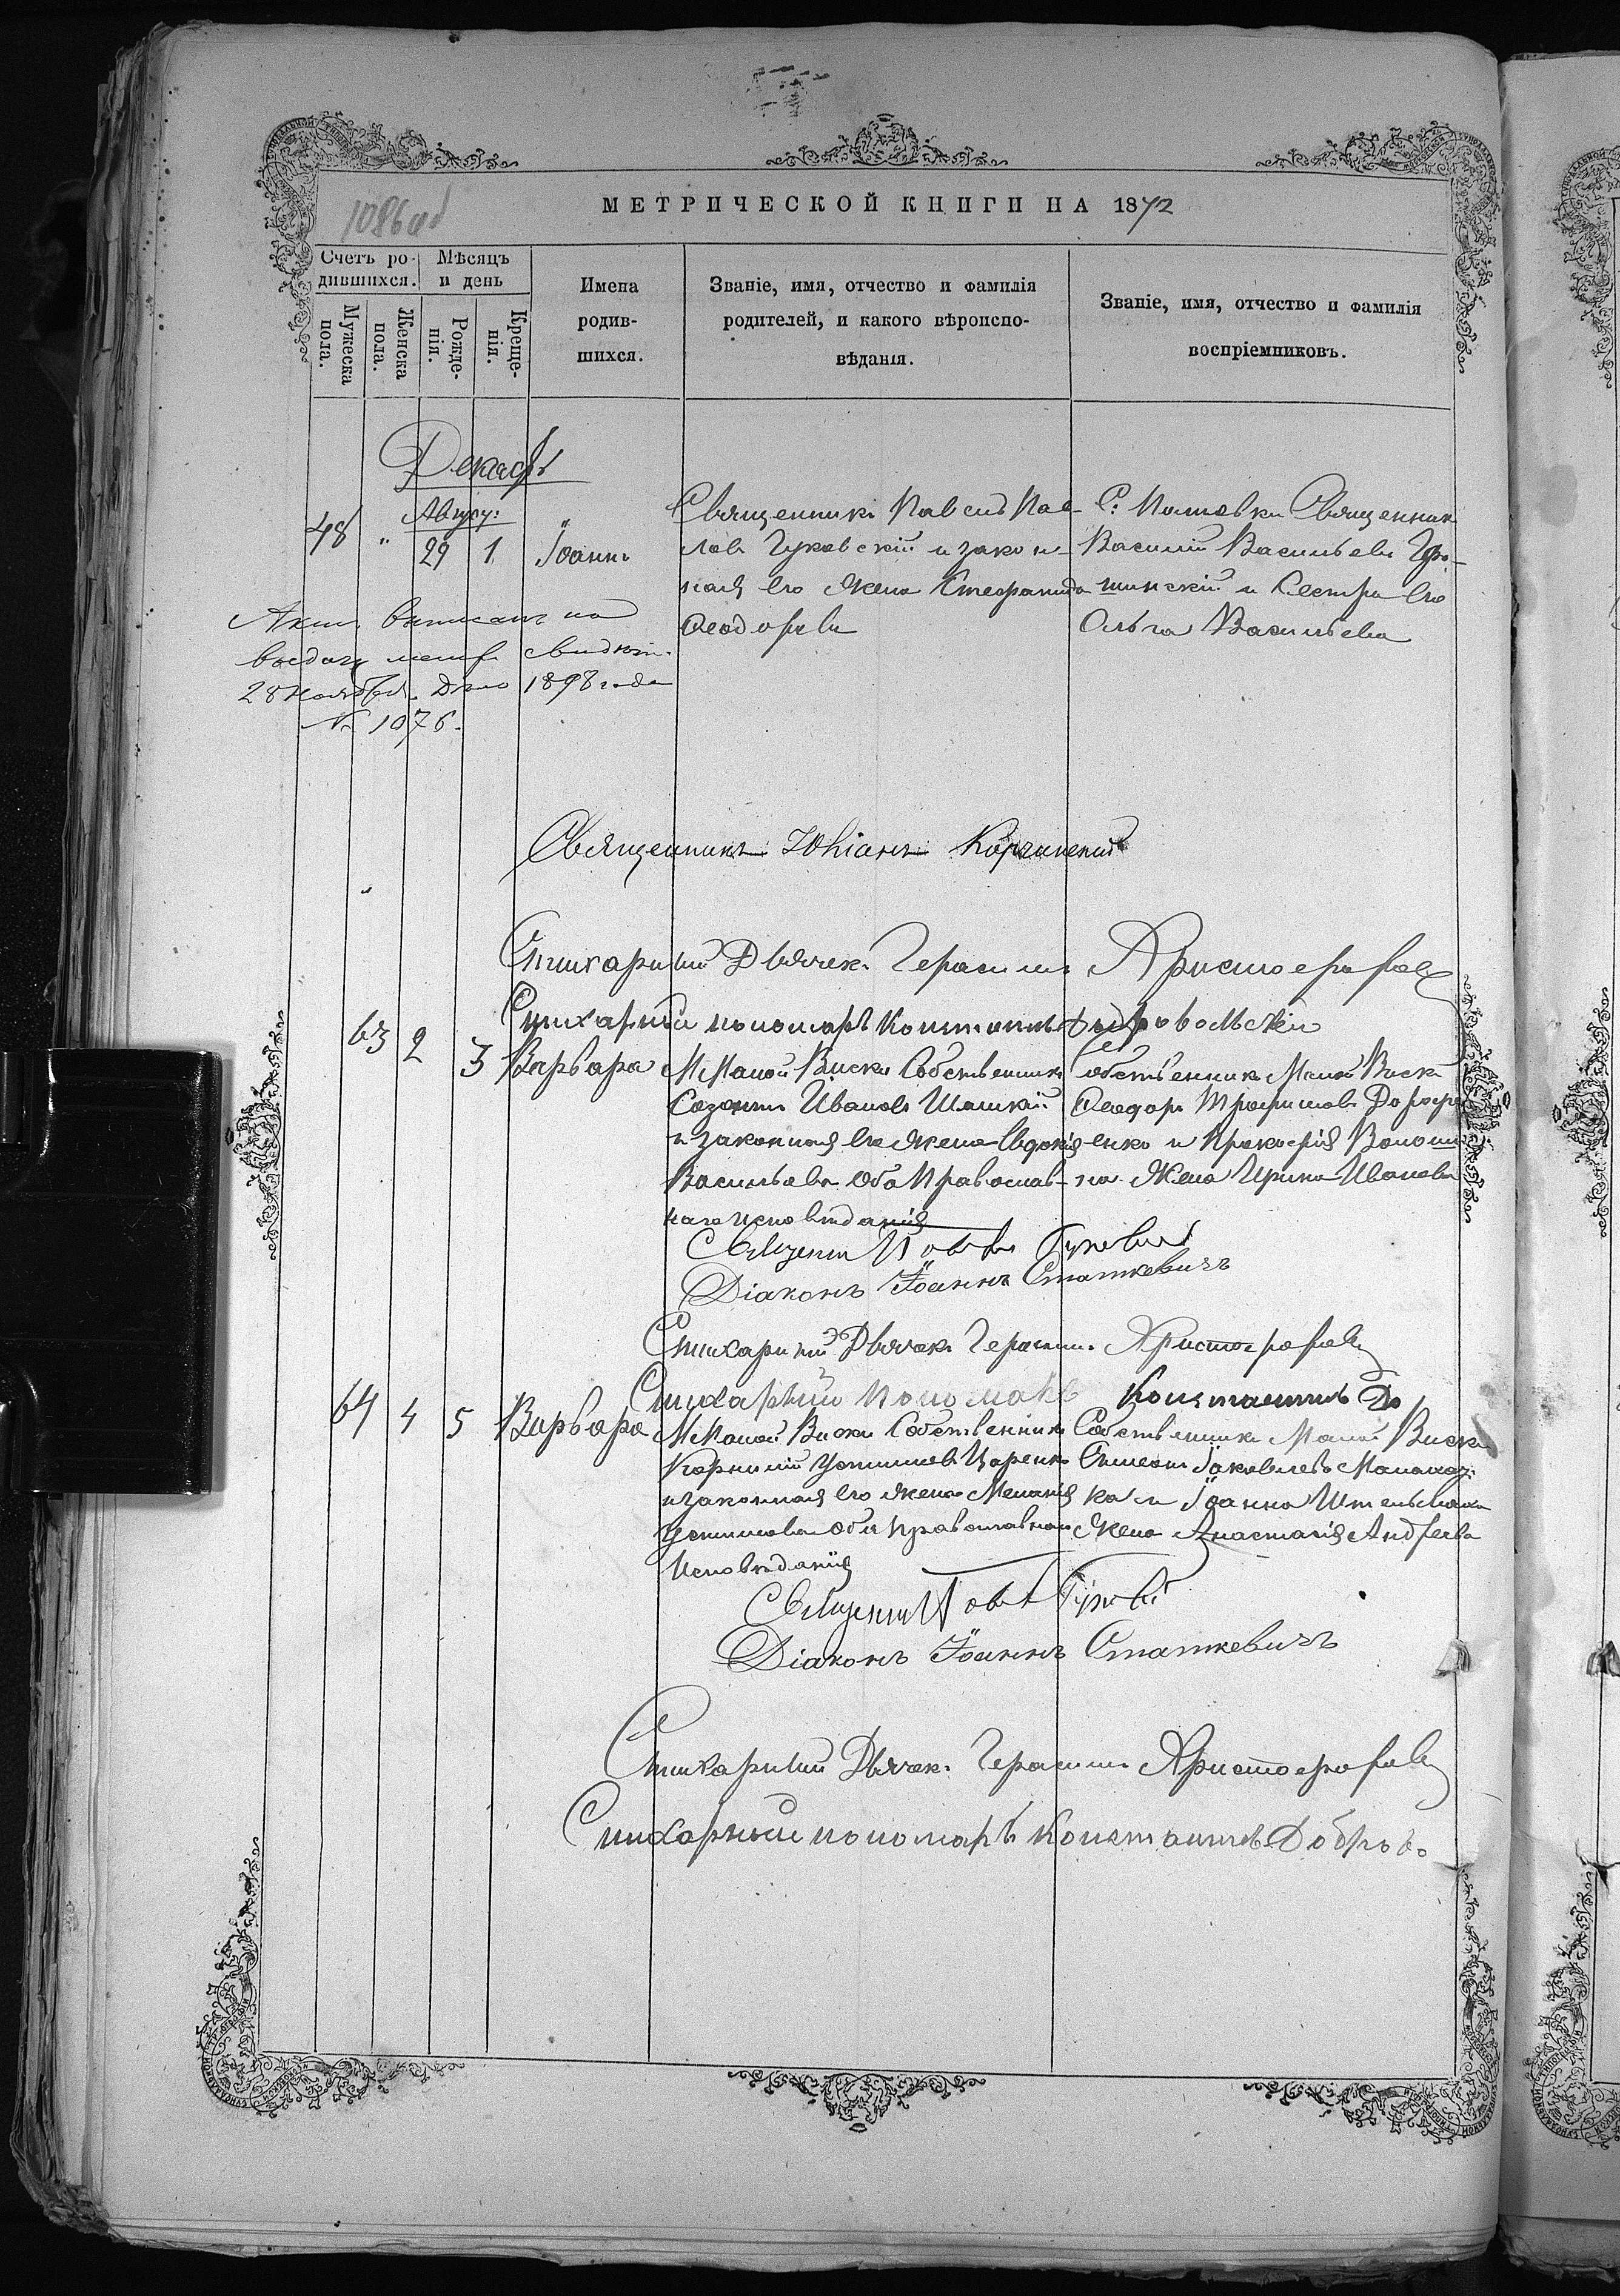 1086 об
МЕТРИЧЕСКОЙ КНИГИ НА 1872
Счетъ ро-
дившихся.
Мѣсяцъ
и день
Мужеска
пола.
Женска
пола.
Рожде-
нія.
Креще-
нія.
Имена
родив-
шихся.
Званіе, имя, отчество и фамилія
родителей, и какого вѣроиспо-
вѣданія.
Званіе, имя, отчество и фамилія
воспріемниковъ.
Декабрь
Август:
48 " 29 1 Іоаннъ
Священникъ Павелъ Пав-
ловъ Гуковскій и закон-
ная его жена Стефанида
Феодорова
С: Священникъ
Василій Васильевъ
шинскій и Сестра его
Ольга Васильева
Актъ выписанъ на
выдачу метр. свидѣт.
28 Ноября Дѣло 1898 года
№ 1076.
Священникъ
Стихарный Дьячекъ Герасимъ Христофоровъ
Стихарный пономарь Константинъ Добровольскій
63 2 3 Варвара
М Малой Виски Собственникъ
Созонтъ Ивановъ
и законная его жена Евдокія
Васильева оба Православ-
наго исповѣданія
Собственникъ Малой Виски
Феодоръ Трофимовъ Дороф-
енко и Прокофія Волоши-
на жена Ирина Иванова
Священникъ Павелъ Гуковскій
Діаконъ Іоаннъ Статкевичъ
Стихарный Дьячекъ Герасимъ Христофоровъ
Стихарный Пономарь Константинъ До
64 4 5 Варвара
М Малой Виски Собственникъ
Корнилій Устимовъ Царенко
и законная его жена Меланія
Устимова оба православнаго
Исповѣданія
Собственникъ Малой Виски
Симеонъ Іаковлевъ
ка и Іоанна Штельмаха
жена Анастасія Андреева
Священникъ Павелъ Гуковскій
Діаконъ Іоаннъ Статкевичъ
Стихарный Дьячекъ Герасимъ Христофоровъ
Стихарный пономарь Константинъ Доброво